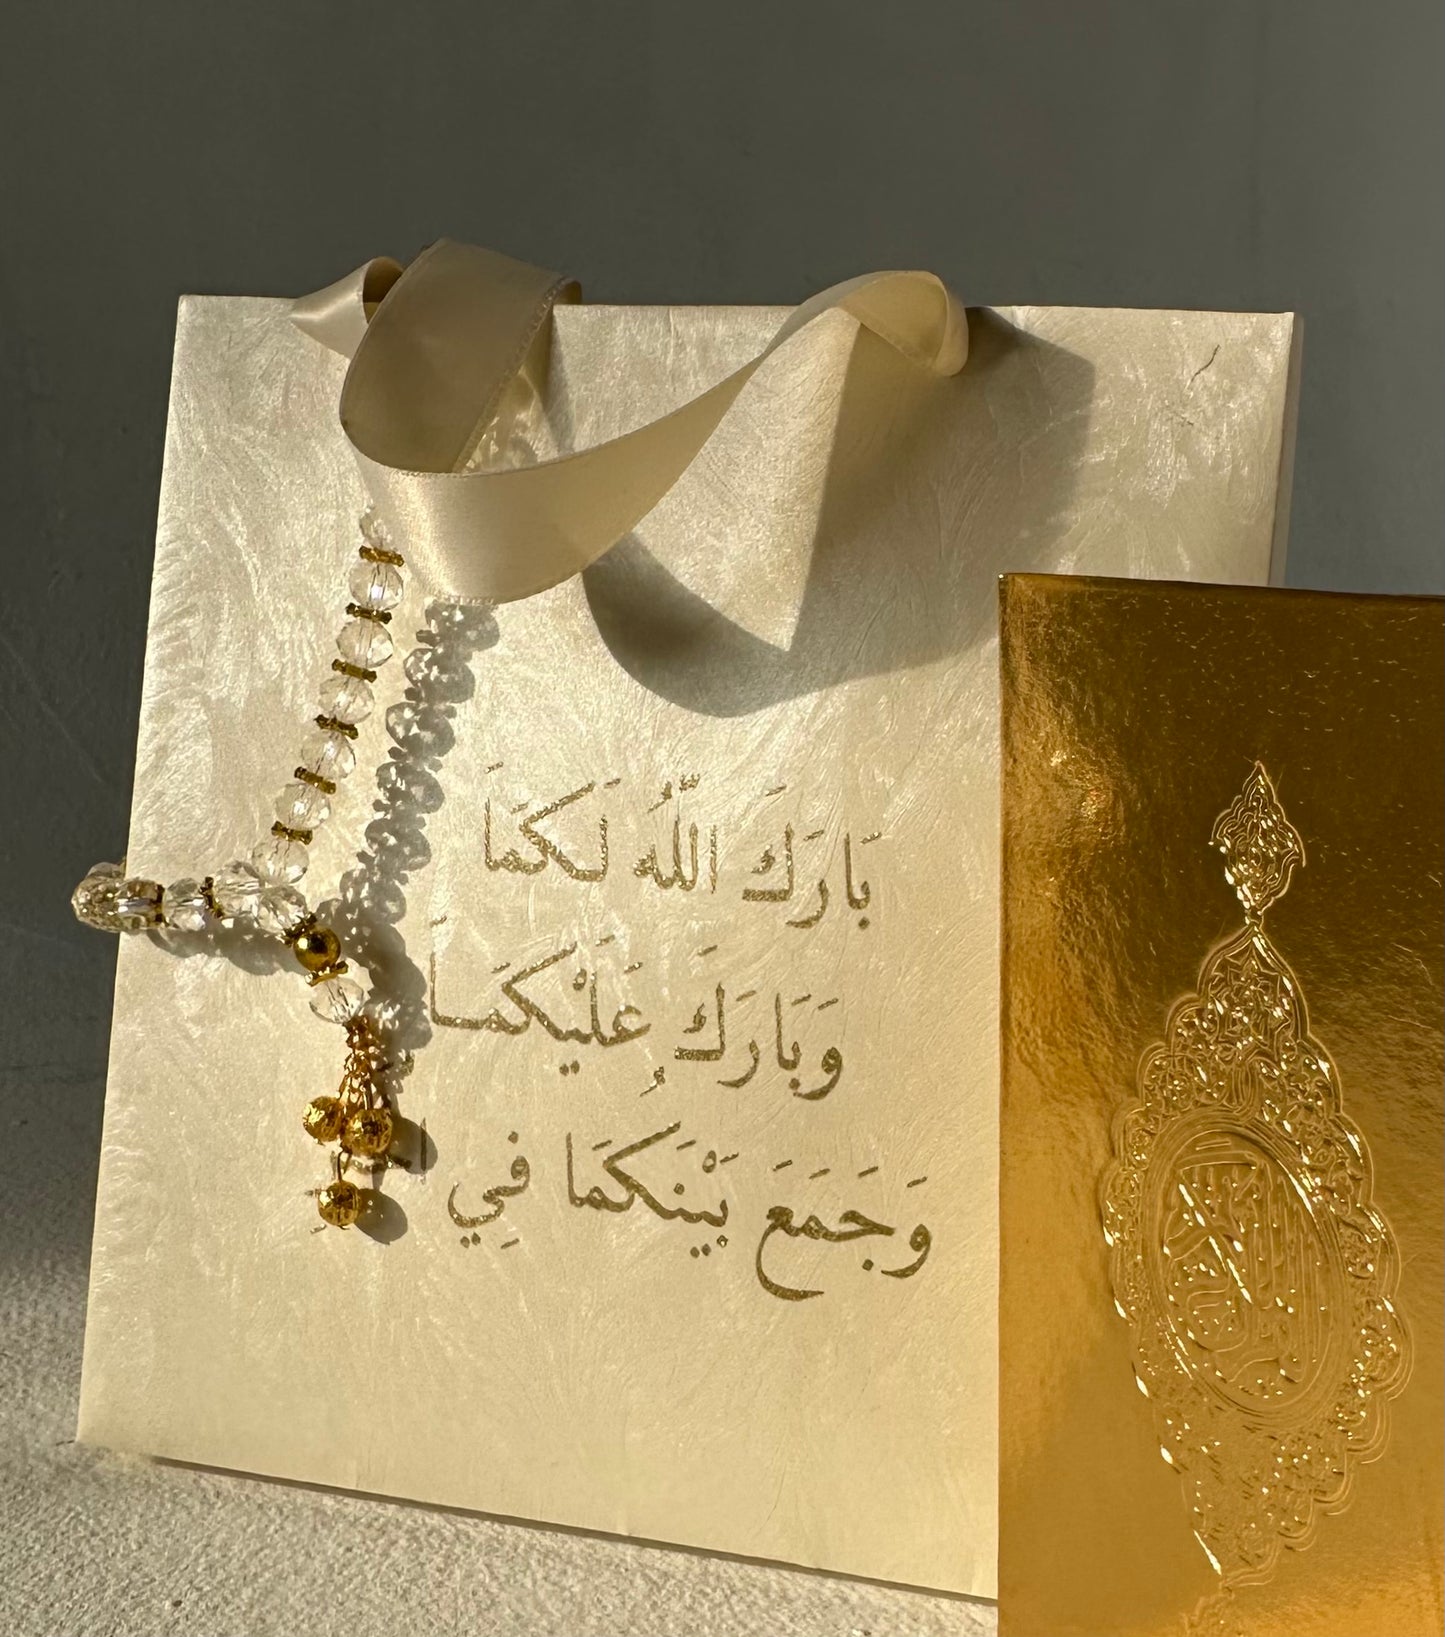 بَارَكَ اللّهُ لَكُمَا
وَبَارَكَ عَلَيْكُمَا
وَجَمَعَ بَيْنَكُمَا فِي